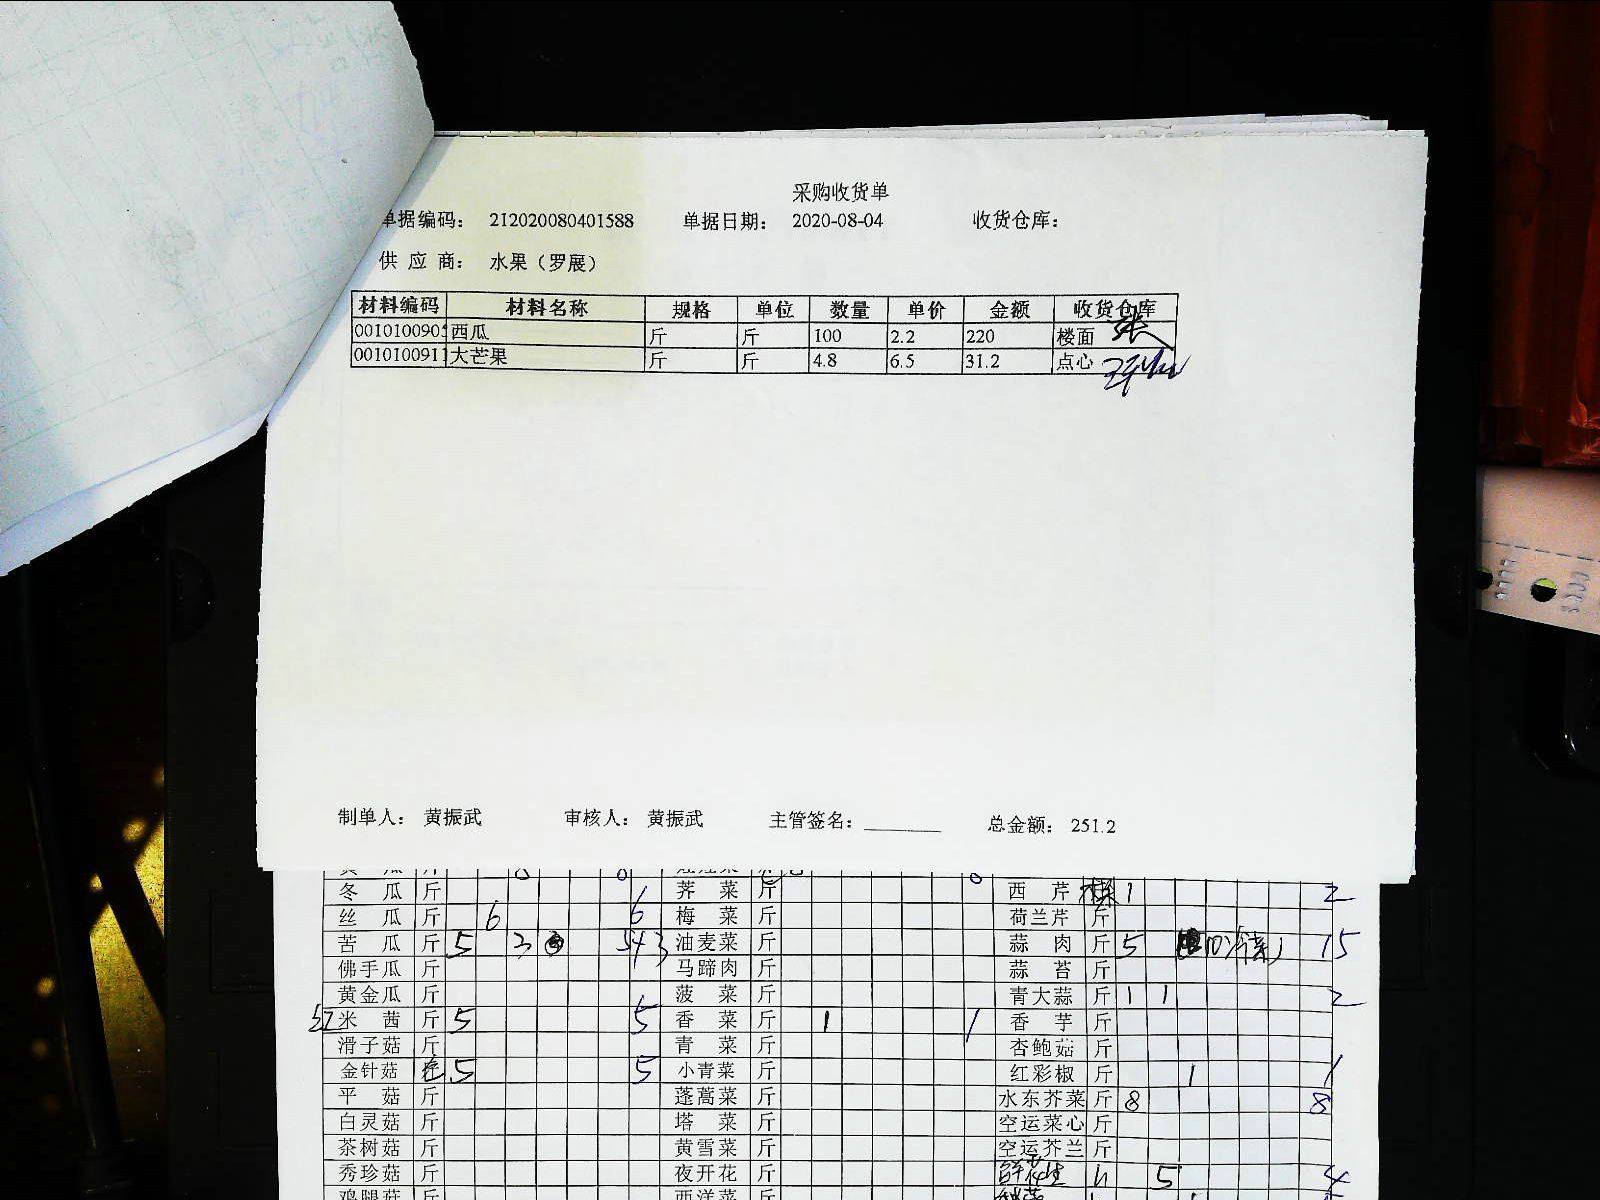 采购收货单
单据编码： 212020080401588 单据日期： 2020-08-04 收货仓库：
供 应 商： 水果（罗展）
材料编码 材料名称 规格 单位 数量 单价 金额 收货仓库
001010090 西瓜 斤 斤 100 2.2 220 楼面
001010091 大芒果 斤 斤 4.8 6.5 31.2 点心
制单人： 黄振武 审核人： 黄振武 主管签名： 总金额： 251.2
冬 瓜 斤 6 荠 菜 斤 西 芹 1 2
丝 瓜 斤 6 6 梅 菜 斤 荷兰芹 斤
苦 瓜 斤 5 3 油麦菜 斤 蒜 肉 斤 5 15
佛手瓜 斤 马蹄肉 斤 蒜 苔 斤
黄金瓜 斤 菠 菜 斤 青大蒜 斤 1 1 2
红 米 茜 斤 5 5 香 菜 斤 1 1 香 芋 斤
滑子菇 斤 青 菜 斤 杏鲍菇 斤
金针菇 5 5 小青菜 斤 红彩椒 斤 1 1
平 菇 斤 蓬蒿菜 斤 水东芥菜 斤 8 8
白灵菇 斤 塔 菜 斤 空运菜心 斤
茶树菇 斤 黄雪菜 斤 空运芥兰 斤
秀珍菇 斤 夜开花 斤 5
鸡腿菇 斤 西洋菜 斤